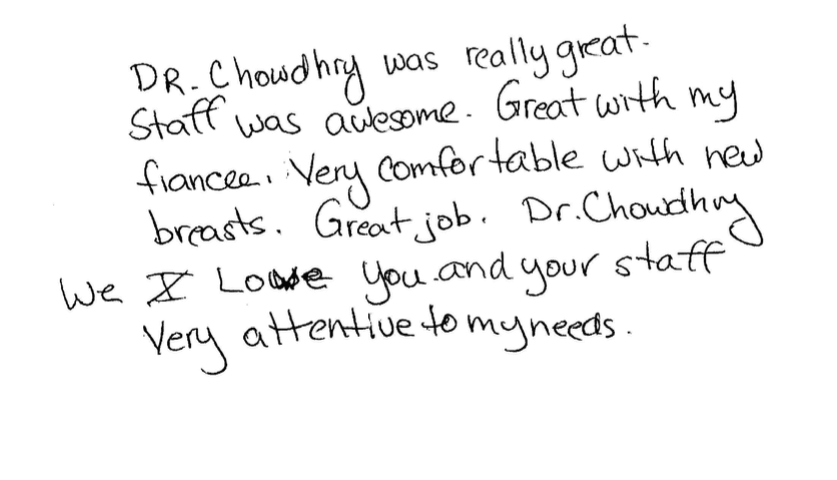 DR. Chowdhry was really great.
Staff was awesome. Great with my
fiancee. Very comfortable with new
breasts. Great job. Dr. Chowdhry
We I Love you and your staff
Very attentive to my needs.